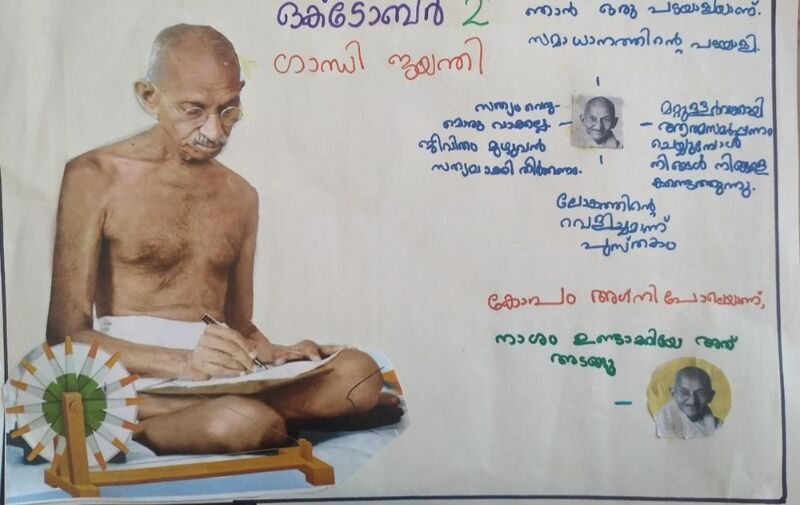 ഒക്ടോബർ 2
ഗാന്ധി ജയന്തി
ഞാൻ ഒരു പടയാളിയാണ്.
സമാധാനത്തിന്റെ പയോളി.
സത്യം വെറു-
മൊരു വാക്കല്ല
ജീവിതം മുഴുവൻ
സത്യമാക്കി തീർക്കണം.
മറ്റുള്ളവർക്കായി
ആത്മസമർപ്പണം
ചെയ്യുമ്പോൾ
നിങ്ങൾ നിങ്ങളെ
കണ്ടെത്തുന്നു.
ലോകത്തിന്റെ
വെളിച്ചമാണ്
പുസ്തകം
കോപം അഗ്നി പോലെയാണ്,
നാശം ഉണ്ടാക്കിയേ അത്
അടങ്ങൂ